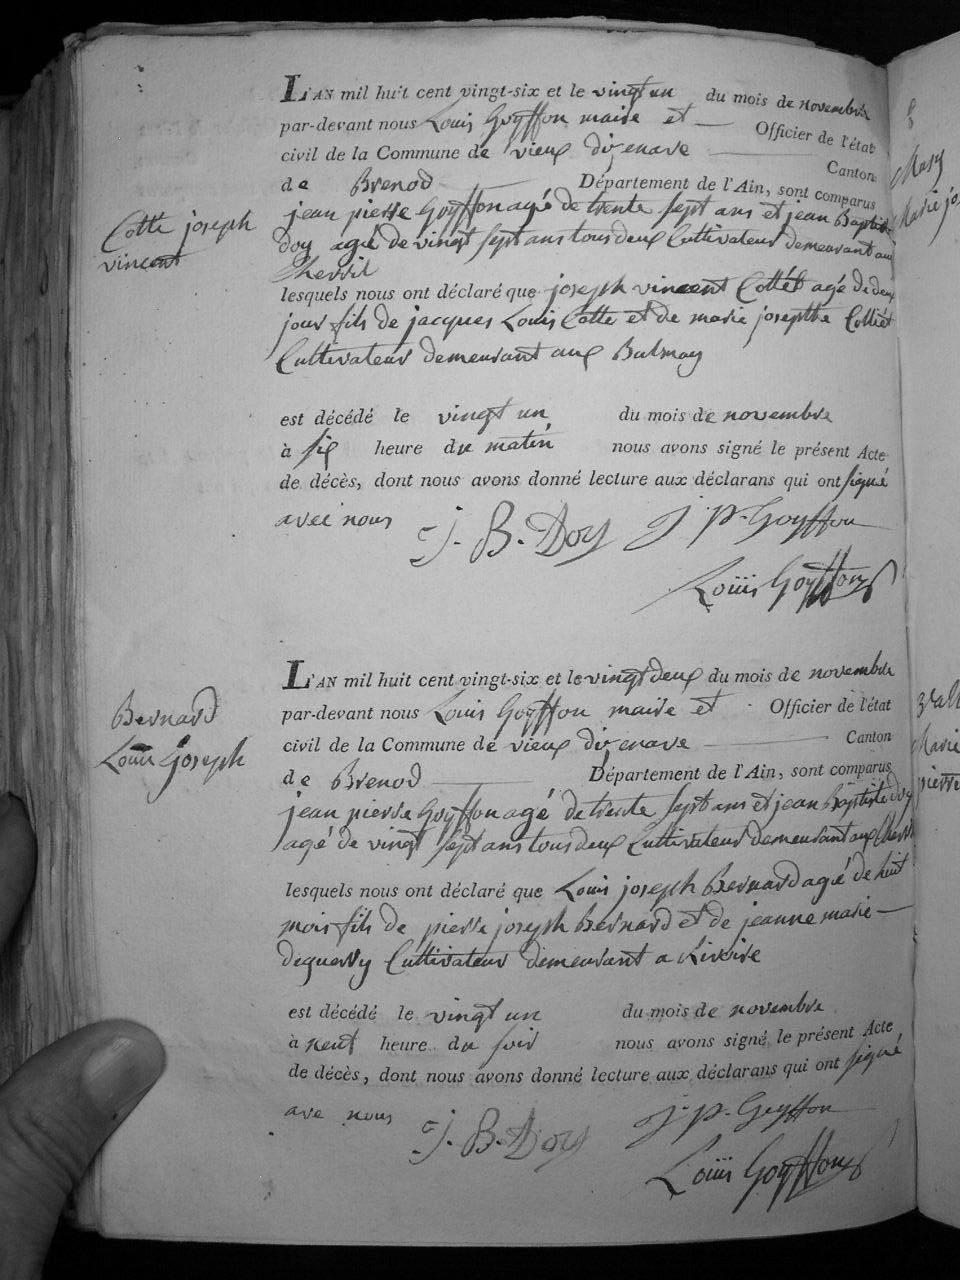 L'AN mil huit cent vingt-six et le vingt un du mois de novembre
par-devant nous Louis Goyffon maire et Officier de l'état
civil de la Commune de vieux dizenave Canton
de Brenod Département de l'Ain, sont comparus
jean pierre Goyffon agé de trente sept ans et jean Baptiste
doy agé de vingt sept ans tous deux Cultivateur demeurant au
Cotte joseph
vincent
lesquels nous ont déclaré que joseph vincent Cottét agé de deux
jour fils de jacques Louis Cotte et de marie josepthe Colliet
Cultivateur demeurant aux Balmay
est décédé le vingt un du mois de novembre
à six heure du matin nous avons signé le présent Acte
de décès, dont nous avons donné lecture aux déclarans qui ont signé
avec nous J. B. Doy J. P. Goyffon
Louis Goyffon
L'AN mil huit cent vingt-six et le vingt deux du mois de novembre
par-devant nous Louis Goyffon maire et Officier de l'état
civil de la Commune de vieux dizenave Canton
de Brenod Département de l'Ain, sont comparus
Bernard
Louis joseph
jean pierre Goyffon agé de trente sept ans et jean Baptiste doy
agé de vingt sept ans tous deux Cultivateur demeurant aux
lesquels nous ont déclaré que Louis joseph Bernard agé de huit
mois fils de pierre joseph Bernard et de jeanne marie
deguerry Cultivateur demeurant a
est décédé le vingt un du mois de novembre
à neuf heure du soir nous avons signé le présent Acte
de décès, dont nous avons donné lecture aux déclarans qui ont signé
ave nous J. B. Doy J. P. Goyffon
Louis Goyffon
Mary
Marie jo
Marie
pierre